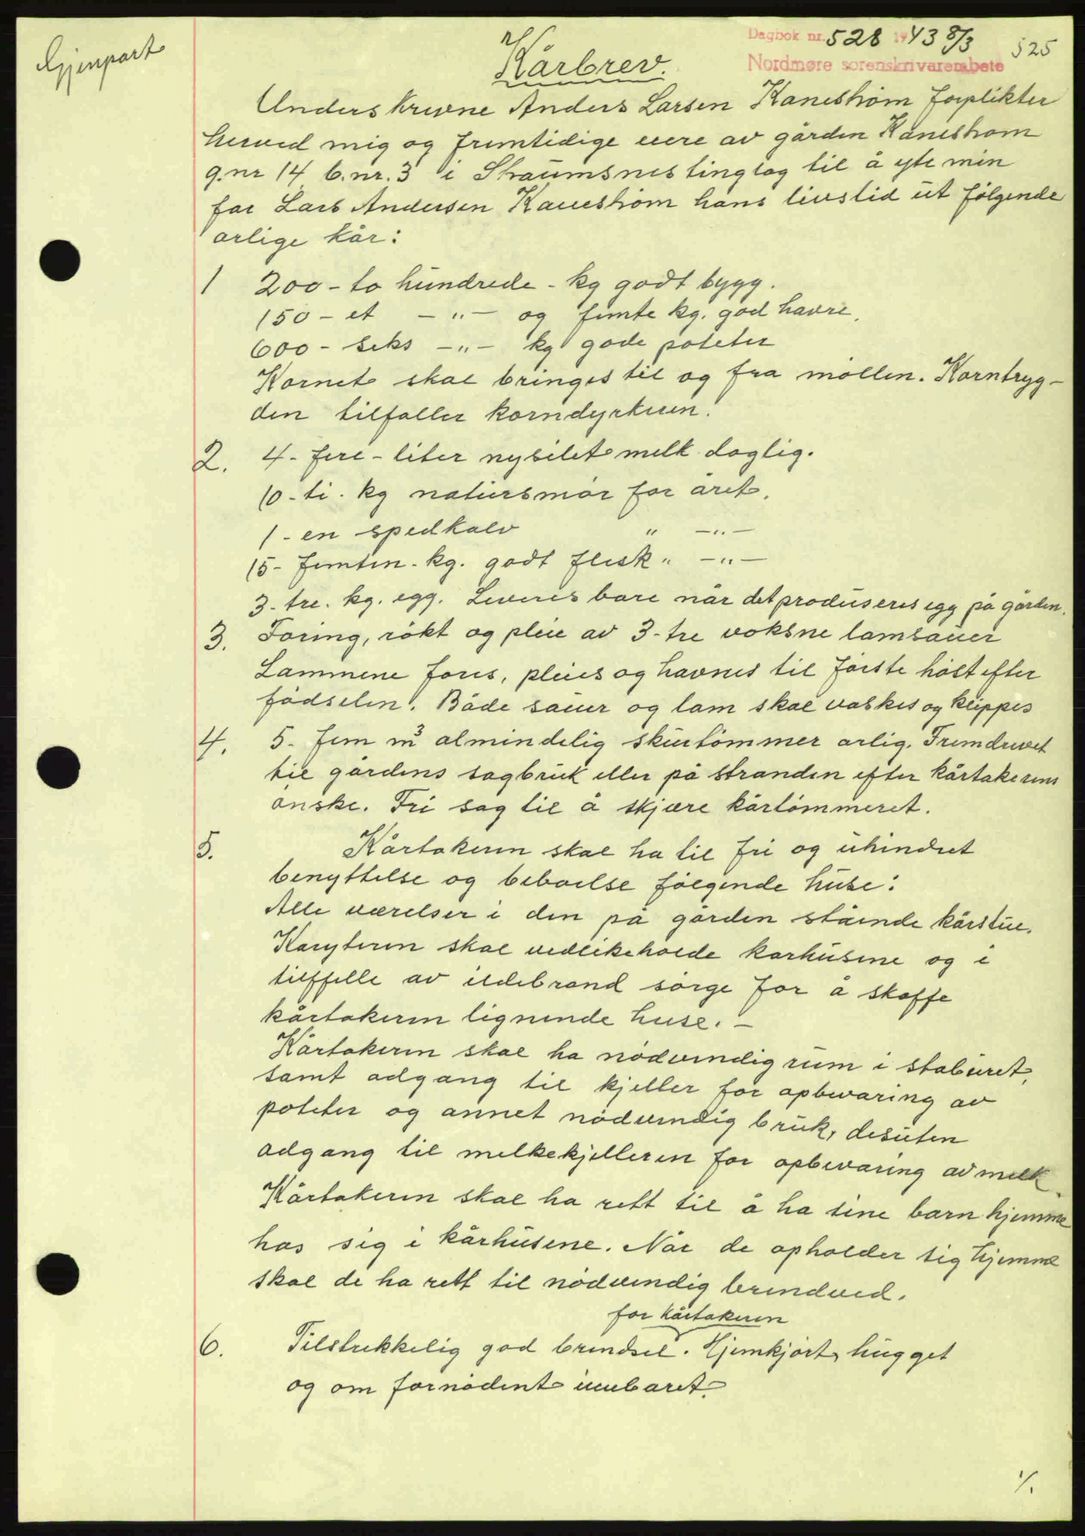 Gjenpart
Dagbok nr. 528 1943 8/3
525
Nordmøre sorenskriverembete
Kårbrev.
Underskrevne Anders Larsen Kanestrøm forplikter
herved mig og fremtidige eiere av gården Kanestrøm
g.nr 14 b.nr. 3 i Straumsnes tinglag til å yte min
far Lars Andersen Kanestrøm hans livstid ut følgende
årlige kår:
1 200 - to hundrede - kg godt bygg.
150 - et - „ - og femte kg. god havre.
600 - seks - „ - kg gode poteter
Kornet skal bringes til og fra møllen. Korntryg-
den tilfaller korndyrkeren.
2. 4 - fire - liter nysilet melk daglig.
10 - ti - kg natursmør for året.
1 - en spedkalv „ - „ -
15 - femten - kg. godt flesk „ - „ -
3 - tre. kg. egg. Leveres bare når det produseres egg på gården.
3. Foring, røkt og pleie av 3 - tre voksne lamsauer
Lammene fores, pleies og havnes til første høst efter
fødselen. Både sauer og lam skal vaskes og klippes
4. 5 - fem m³ almindelig skurtømmer årlig. Fremdrevet
til gårdens sagbruk eller på stranden efter kårtakerens
ønske. Fri sag til å skjære kårtømmeret.
5. Kårtakeren skal ha til fri og uhindret
benyttelse og beboelse følgende huse:
Alle værelser i den på gården stående kårstue.
Kåryteren skal vedlikeholde kårhusene og i
tilfelle av ildebrand sørge for å skaffe
kårtakeren lignende huse. -
Kårtakeren skal ha nødvendig rum i staburet,
samt adgang til kjeller for opbevaring av
poteter og annet nødvendig bruk, desuten
adgang til melkekjelleren for opbevaring av melk.
Kårtakeren skal ha rett til å ha sine barn hjemme
hos sig i kårhusene. Når de opholder sig hjemme
skal de ha rett til nødvendig brendved.
for kårtakeren
6. Tilstrekkelig god brendsel. Hjemkjørt, hugget
og om fornødent innbåret.
⁒